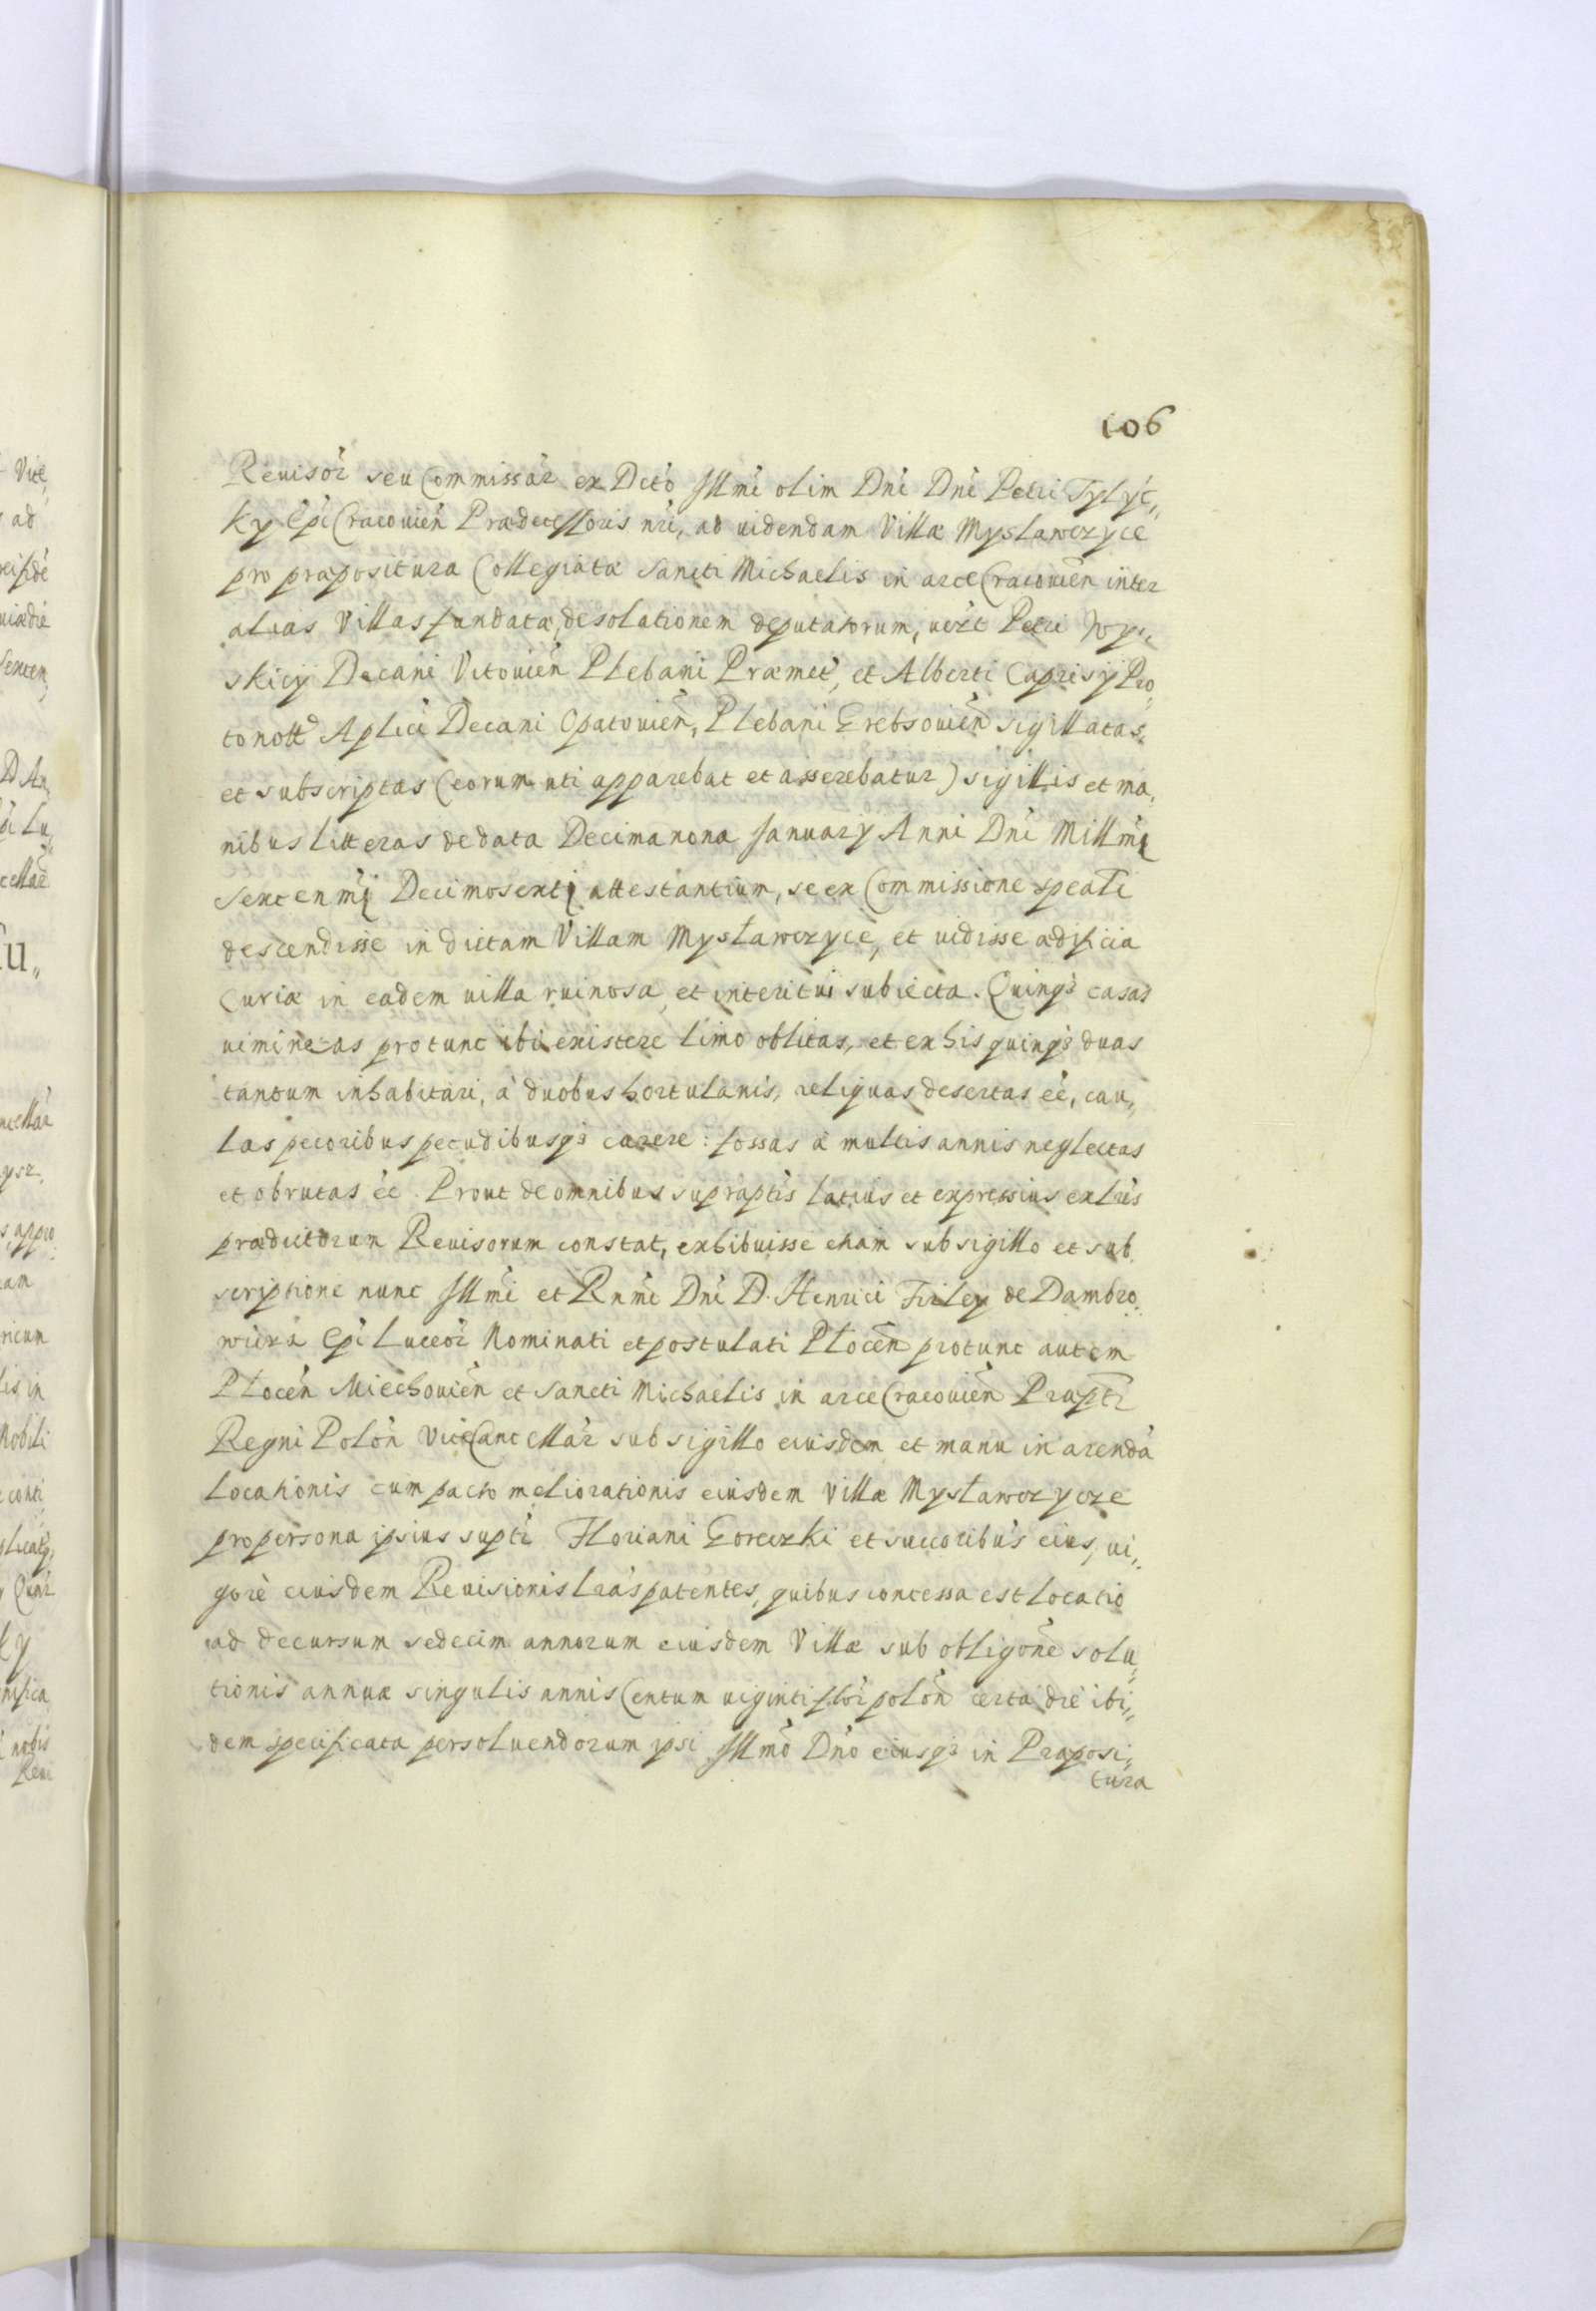 106
Reuisor seu Commissar ex Dcto Illmi olim Dni Dni Petri Tylyc„
Ky Epi Cracouien Prædecessoris nri, ad uidendam Villæ Mysławczyce
pro præpositura Collegiatæ Sancti Michaelis in arce Cracouien inter
alias Villas fundatæ, desolationem deputatorum, uezt Petri Wys„
skicy Decani Vitouien Plebani Præmet, et Alberti Caprisy Pro„
tonott Aplici Decani Opatouien, Plebani Grebsouien sigillatas
et subscriptas (eorum uti apparebat et asserebatur) sigillis et ma„
nibus litteras de data Decima nona January Anni Dni Millmi
Sexcenmi Decimosexti attestantium, se ex Commissione speati
descendisse in dictam Villam Mysławczyce, et uidisse ædificia
Curiæ in eadem uilla ruinosa, et interitui subiecta. Quinq3 casas
uimineas protunc ibi existere limo oblitas, et ex his quinq3 duas
tantum inhabitari, à duobus hortulanis, reliquas desertas ee, cau„
las pecoribus pecudibusq3 carere: fossas a multis annis neglectas
et obrutas ee. Prout de omnibus supraptis latius et expressius ex lris
prædictorum Reuisorum constat, exhibuisse etiam sub sigillo et sub„
scriptione nunc Illmi et Rnmi Dni D. Henrici Firley de Dambro„
wicza Epi Luceor Nominati et postulati Plocen protunc autem
Plocen Miechouien et Sancti Michaelis in arce Cracouien Præpti
Regni Polon Vice Cancellar sub sigillo eiusdem et manu in arendâ
Locationis cum pacto meliorationis eiusdem Villæ Mysławczycze
pro persona ipsius supti Floriani Goreczki et succoribus eius, ui„
gore eiusdem Reuisionis lras patentes, quibus concessa est locatio
ad decursum sedecim annorum eiusdem Villæ sub obligone solu„
tionis annuæ singulis annis Centum uiginti flor polon certa die ibi„
dem specificata persoluendorum ipsi Illmo Dno eiusq3 in Præposi„
tura